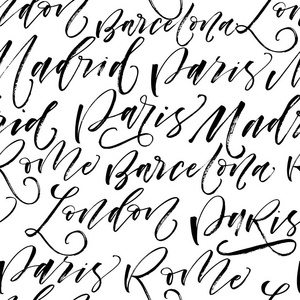 London Barcelona London
Madrid Paris M
Madrid Paris Madrid
Rome Barcelona R
London PARIS
Paris Rome